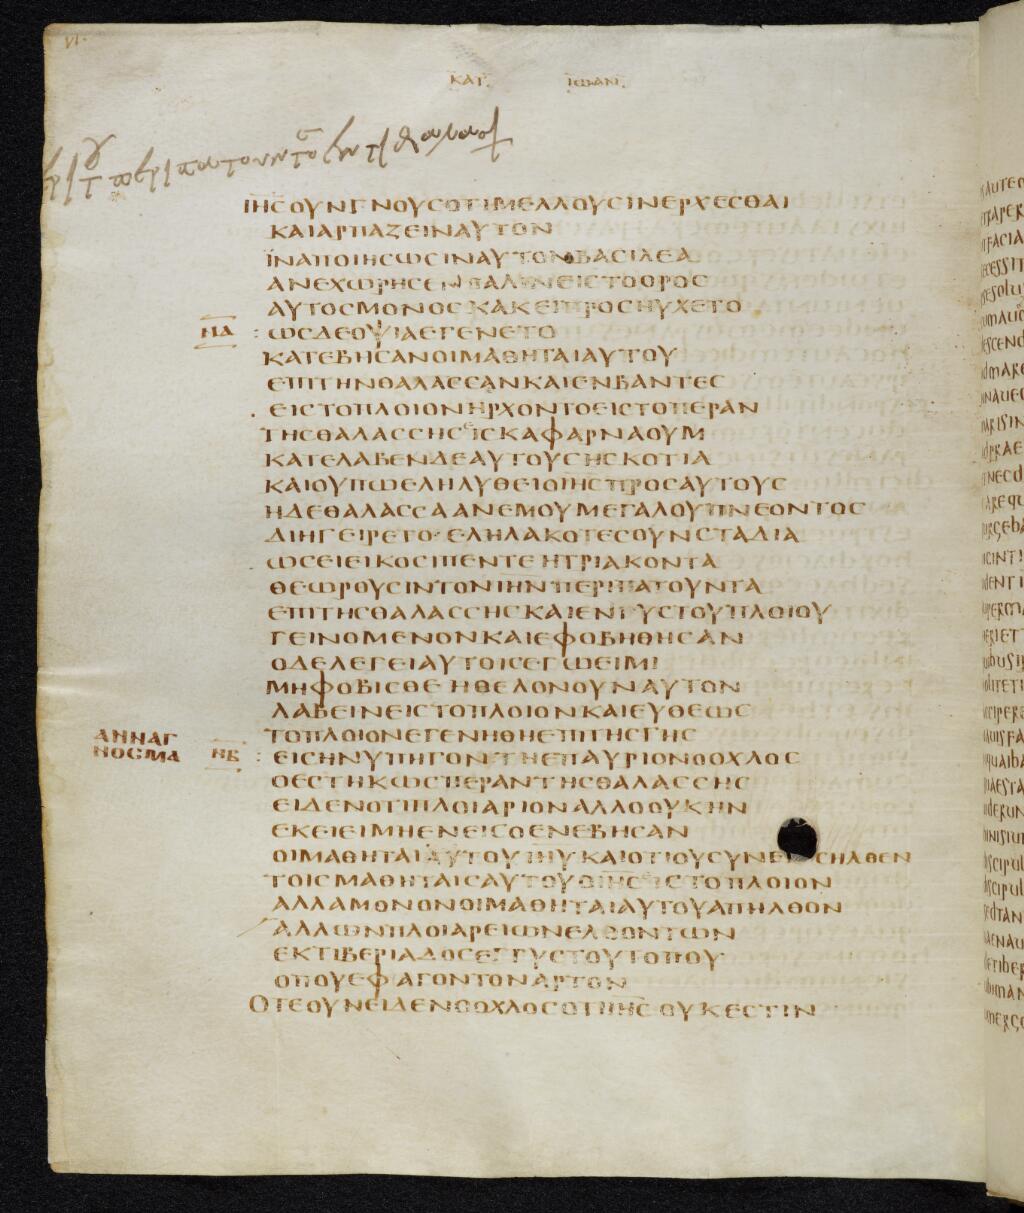 ΚΑΤ ΙΩΑΝ
ΙΗΣ ΟΥΝ ΓΝΟΥΣ ΟΤΙ ΜΕΛΛΟΥΣΙΝ ΕΡΧΕΣΘΑΙ
ΚΑΙ ΑΡΠΑΖΕΙΝ ΑΥΤΟΝ
ΪΝΑ ΠΟΙΗΣΩΣΙΝ ΑΥΤΟΝ ΒΑΣΙΛΕΑ
ΑΝΕΧΩΡΗΣΕΝ ΠΑΛΙΝ ΕΙΣ ΤΟ ΟΡΟΣ
ΑΥΤΟΣ ΜΟΝΟΣ ΚΑΚΕΙ ΠΡΟΣΗΥΧΕΤΟ
ΝΑ : ΩΣ ΔΕ ΟΨΙΑ ΕΓΕΝΕΤΟ
ΚΑΤΕΒΗΣΑΝ ΟΙ ΜΑΘΗΤΑΙ ΑΥΤΟΥ
ΕΠΙ ΤΗΝ ΘΑΛΑΣΣΑΝ ΚΑΙ ΕΝΒΑΝΤΕΣ
ΕΙΣ ΤΟ ΠΛΟΙΟΝ ΗΡΧΟΝΤΟ ΕΙΣ ΤΟ ΠΕΡΑΝ
ΤΗΣ ΘΑΛΑΣΣΗΣ ΕΙΣ ΚΑΦΑΡΝΑΟΥΜ
ΚΑΤΕΛΑΒΕΝ ΔΕ ΑΥΤΟΥΣ Η ΣΚΟΤΙΑ
ΚΑΙ ΟΥΠΩ ΕΛΗΛΥΘΕΙ Ο ΙΗΣ ΠΡΟΣ ΑΥΤΟΥΣ
Η ΔΕ ΘΑΛΑΣΣΑ ΑΝΕΜΟΥ ΜΕΓΑΛΟΥ ΠΝΕΟΝΤΟΣ
ΔΙΗΓΕΙΡΕΤΟ· ΕΛΗΛΑΚΟΤΕΣ ΟΥΝ ΣΤΑΔΙΑ
ΩΣΕΙ ΕΙΚΟΣΙ ΠΕΝΤΕ Η ΤΡΙΑΚΟΝΤΑ
ΘΕΩΡΟΥΣΙΝ ΤΟΝ ΙΗΝ ΠΕΡΙΠΑΤΟΥΝΤΑ
ΕΠΙ ΤΗΣ ΘΑΛΑΣΣΗΣ ΚΑΙ ΕΝΓΥΣ ΤΟΥ ΠΛΟΙΟΥ
ΓΕΙΝΟΜΕΝΟΝ ΚΑΙ ΕΦΟΒΗΘΗΣΑΝ
Ο ΔΕ ΛΕΓΕΙ ΑΥΤΟΙΣ ΕΓΩ ΕΙΜΙ
ΜΗ ΦΟΒΙΣΘΕ ΗΘΕΛΟΝ ΟΥΝ ΑΥΤΟΝ
ΛΑΒΕΙΝ ΕΙΣ ΤΟ ΠΛΟΙΟΝ ΚΑΙ ΕΥΘΕΩΣ
ΑΝΝΑΓ ΤΟ ΠΛΟΙΟΝ ΕΓΕΝΗΘΗ ΕΠΙ ΤΗΣ ΓΗΣ
ΝΟΣΜΑ ΝΒ : ΕΙΣ ΗΝ ΥΠΗΓΟΝ ΤΗ ΕΠΑΥΡΙΟΝ Ο ΟΧΛΟΣ
Ο ΕΣΤΗΚΩΣ ΠΕΡΑΝ ΤΗΣ ΘΑΛΑΣΣΗΣ
ΕΙΔΕΝ ΟΤΙ ΠΛΟΙΑΡΙΟΝ ΑΛΛΟ ΟΥΚ ΗΝ
ΕΚΕΙ ΕΙ ΜΗ ΕΝ ΕΙΣ Ο ΕΝΕΒΗΣΑΝ
ΟΙ ΜΑΘΗΤΑΙ ΑΥΤΟΥ ΙΗΥ ΚΑΙ ΟΤΙ ΟΥ ΣΥΝΕΙΣΗΛΘΕΝ
ΤΟΙΣ ΜΑΘΗΤΑΙΣ ΑΥΤΟΥ Ο ΙΗΣ ΕΙΣ ΤΟ ΠΛΟΙΟΝ
ΑΛΛΑ ΜΟΝΟΝ ΟΙ ΜΑΘΗΤΑΙ ΑΥΤΟΥ ΑΠΗΛΘΟΝ
ΑΛΛΩΝ ΠΛΟΙΑΡΕΙΩΝ ΕΛΘΟΝΤΩΝ
ΕΚ ΤΙΒΕΡΙΑΔΟΣ ΕΓΓΥΣ ΤΟΥ ΤΟΠΟΥ
ΟΠΟΥ ΕΦΑΓΟΝ ΤΟΝ ΑΡΤΟΝ
ΟΤΕ ΟΥΝ ΕΙΔΕΝ Ο ΟΧΛΟΣ ΟΤΙ ΙΗΣ ΟΥΚ ΕΣΤΙΝ